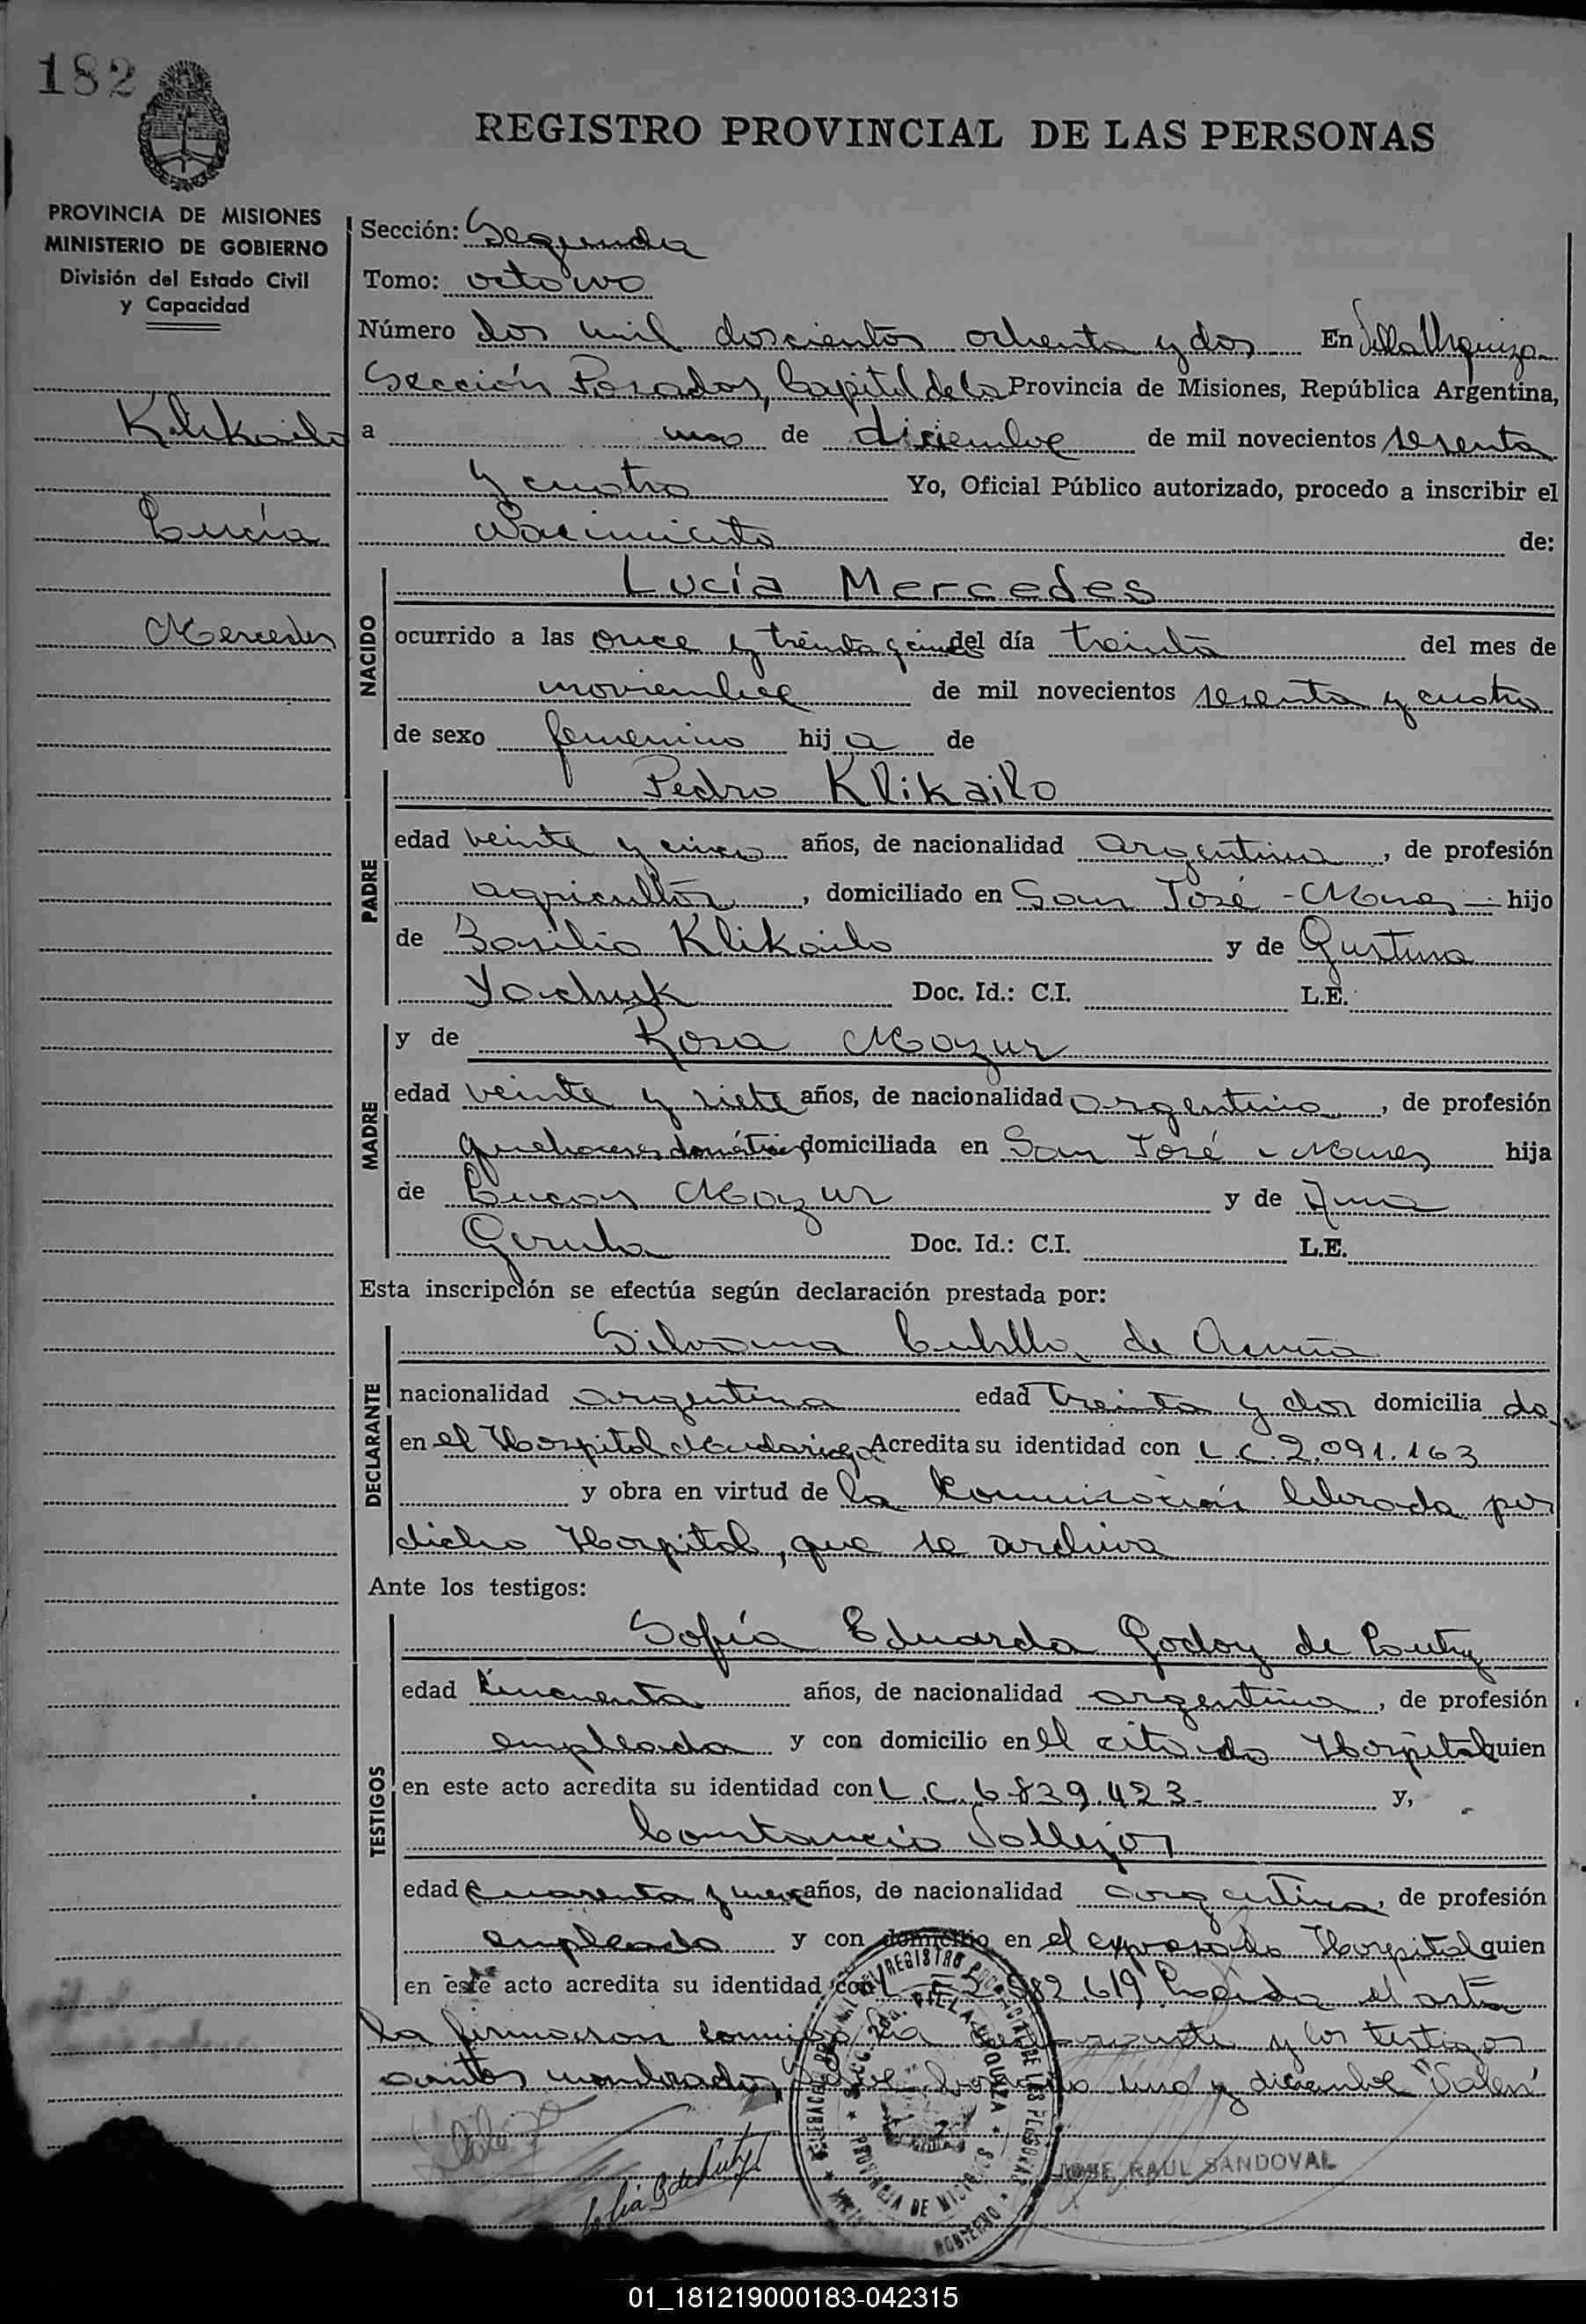 182
REGISTRO PROVINCIAL DE LAS PERSONAS
PROVINCIA DE MISIONES
MINISTERIO DE GOBIERNO
División del Estado Civil
y Capacidad
Klikailo
Lucía
Mercedes
Sección: Segunda
Tomo: octavo
Número dos mil doscientos ochenta y dos En Villa Urquiza
Sección Posadas, Capital de la Provincia de Misiones, República Argentina,
a uno de diciembre de mil novecientos sesenta
y cuatro Yo, Oficial Público autorizado, procedo a inscribir el
Nacimiento de:
NACIDO
Lucía Mercedes
ocurrido a las once y treinta y cinco del día treinta del mes de
noviembre de mil novecientos sesenta y cuatro
de sexo femenino hija de
PADRE
Pedro Klikailo
edad veinte y cinco años, de nacionalidad argentina, de profesión
agricultor, domiciliado en San José - Mnes - hijo
de Basilio Klikailo y de Gustina
Yachuk Doc. Id.: C.I. L.E.
MADRE
y de Rosa Mazur
edad veinte y siete años, de nacionalidad argentina, de profesión
quehaceres domésticos, domiciliada en San José - Mnes hija
de Lucas Mazur y de Ana
Gerula Doc. Id.: C.I. L.E.
Esta inscripción se efectúa según declaración prestada por:
DECLARANTE
Silvana de Acuña
nacionalidad argentina edad treinta y dos domiciliada
en el Hospital Madariaga Acredita su identidad con L.C. 2.091.163
y obra en virtud de la Comunicación librada por
dicho Hospital, que se archiva
Ante los testigos:
TESTIGOS
Sofía Eduarda Godoy de
edad cincuenta años, de nacionalidad argentina, de profesión
empleada y con domicilio en el citado Hospital quien
en este acto acredita su identidad con L.C. 6.839.423. y,
Constancio Vallejos
edad cuarenta y nueve años, de nacionalidad argentina, de profesión
empleado y con domicilio en el expresado Hospital quien
en este acto acredita su identidad con L.E. 982.619 Leída el acta
la firmaron conmigo la declarante y los testigos
antes nombrados, Sobre borrado uno y diciembre "Valen"
JOSE RAUL SANDOVAL
SECC. 2da. VILLA URQUIZA
PROVINCIA DE MISIONES
01_181219000183-042315